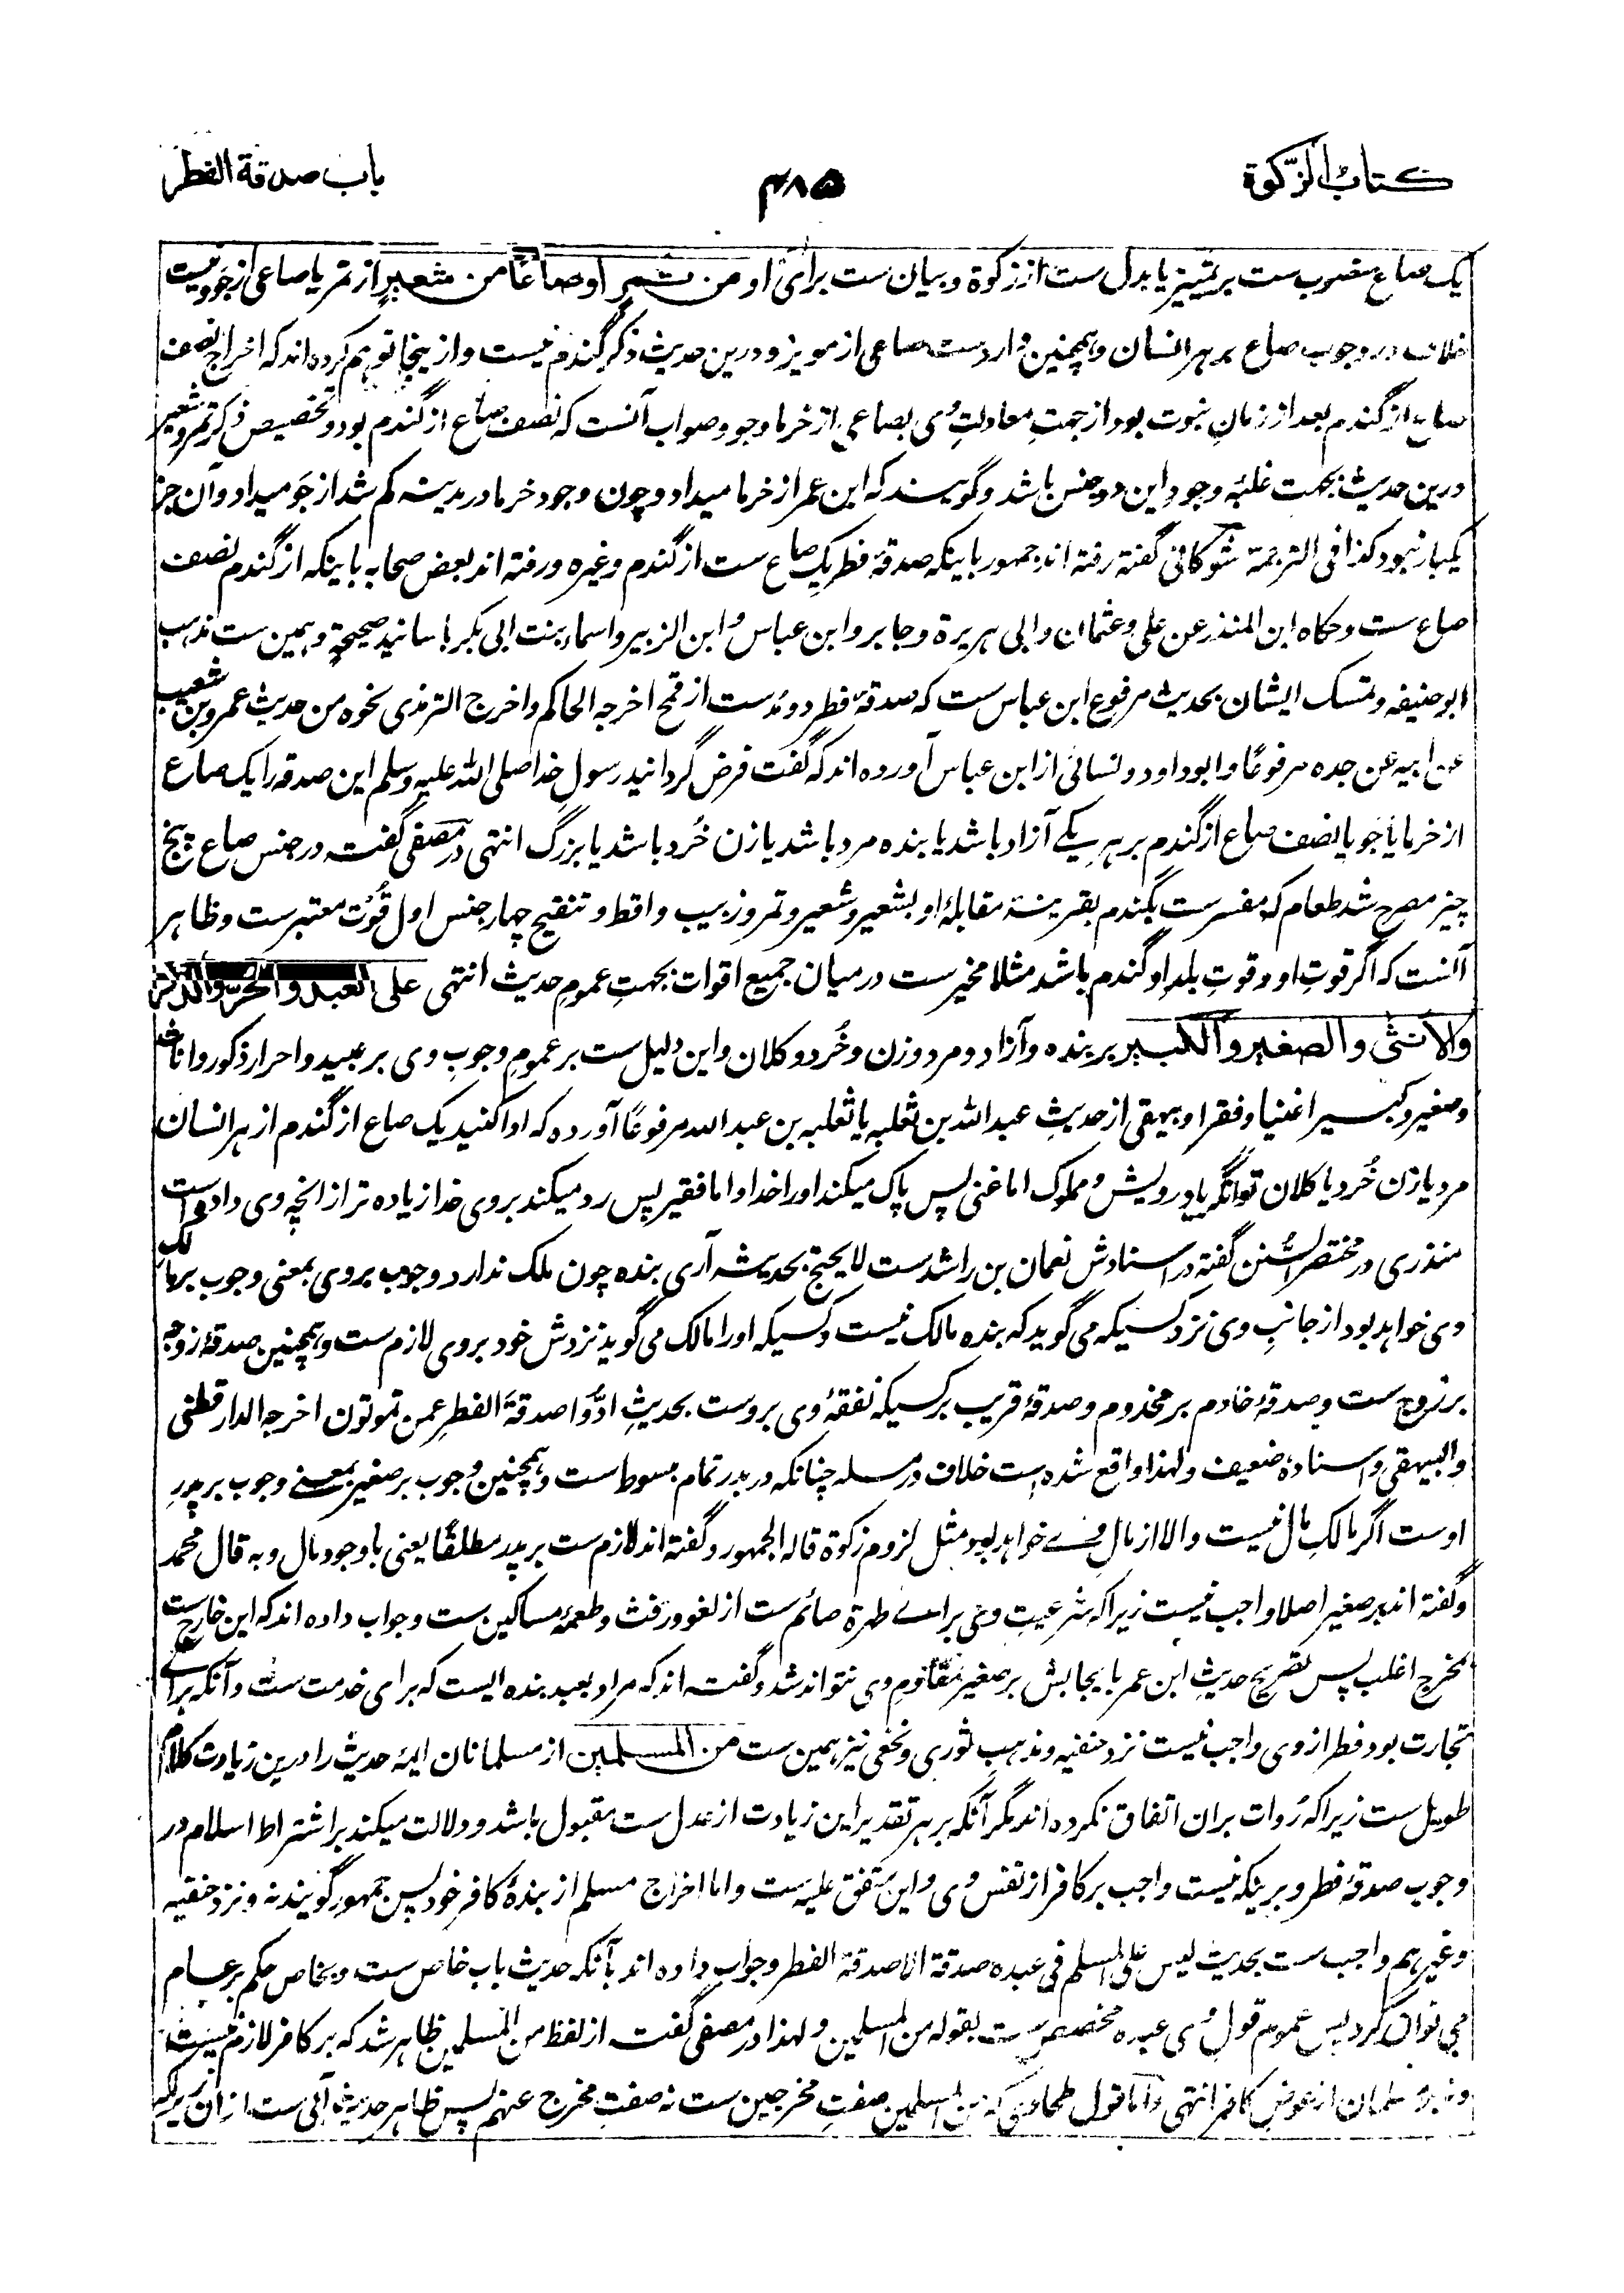 کتاب الزکوة
۴۸۵
باب صدقة الفطر
یک صاع منصوب ست بر تمییز یا بدل ست از زکوة و بیان ست برای او من تمر او صاعًا من شعیر از تمر یا صاعی از جو و نیست
خلاف در وجوب صاع بر هر انسان و همچنین وارد ست صاعی از مویز و درین حدیث ذکر گندم نیست و از ینجا توهم کرده اند که اخراج نصف
صاع از گندم بعد از زمانِ نبوت بود از جهتِ معادلتِ وی بصاعی از خرما و جو و صواب آنست که نصف صاع از گندم بود و تخصیص ذکر تمر و شعیر
درین حدیث بجهت غلبهٔ وجود این دو جنس باشد و گویند که ابن عمر از خرما میداد و چون وجود خرما در مدینه کم شد از جَو میداد و آن جز
یکبار نبود کذا فی الترجمة شوکانی گفته رفته اند جمهور باینکه صدقهٔ فطر یک صاع ست از گندم و غیره و رفته اند بعض صحابه باینکه از گندم نصف
صاع ست و حکاه ابن المنذر عن علی و عثمان و ابی هریرة و جابر و ابن عباس و ابن الزبیر و اسماء بنت ابی بکر باسانید صحیحةٍ و همین ست مذهب
ابو حنیفه و تمسک ایشان بحدیث مرفوع ابن عباس ست که صدقهٔ فطر دو مُد ست از قمح اخرجه الحاکم و اخرج الترمذی نحوه من حدیث عمرو بن شعیب
عن ابیه عن جده مرفوعًا و ابو داود و نسائی از ابن عباس آورده اند که گفت فرض گردانید رسولِ خدا صلی الله علیه وسلم این صدقه را یک صاع
از خرما یا جو یا نصف صاع از گندم بر هر یکے آزاد باشد یا بنده مرد باشد یا زن خُرد باشد یا بزرگ انتهی در مصفی گفت در جنس صاع پنج
چیز مصرح شد طعام که مفسر ست بگندم بقرینهٔ مقابلهٔ او بشعیر و شعیر و تمر و زبیب و اقط و تنقیح چهار جنس اول قُوت معتبر ست و ظاهر
آنست که اگر قوتِ او و قوتِ بلدِ او گندم باشد مثلا مخیر ست در میان جمیع اقوات بجهتِ عمومِ حدیث انتهی علی العبد والحُرّ والذکر
والأنثی والصغیر والکبیر بر بنده و آزاد و مرد و زن و خُرد و کلان و این دلیل ست بر عمومِ وجوبِ وی بر عبید و احرار ذکور و اناث
و صغیر و کبیر اغنیا و فقرا و بیهقی از حدیثِ عبد الله بن ثعلبه یا ثعلبه بن عبد الله مرفوعًا آورده که ادا کنید یک صاع از گندم از هر انسان
مرد یا زن خُرد یا کلان توانگر یا درویش و مملوک اما غنی پس پاک میکند او را خدا و اما فقیر پس رد میکند بروی خدا زیاده تر از انچه وی داده است
منذری در مختصر السُّنن گفته در اسنادش نعمان بن راشد ست لا یحتج بحدیثه آری بنده چون ملک ندارد وجوب بروی بمعنی وجوب بر مالک
وی خواهد بود از جانبِ وی نزد کسیکه می گوید که بنده مالک نیست و کسیکه او را مالک می گوید نزدش خود بروی لازم ست و همچنین صدقهٔ زوجه
بر زوج ست و صدقهٔ خادم بر مخدوم و صدقهٔ قریب بر کسیکه نفقهٔ وی بروست بحدیثِ ادُّوا صدقةَ الفطرِ عمن تمونون اخرجه الدارقطنی
والبیهقی و اسناده ضعیف و لهذا واقع شده است خلاف در مسله چنانکه در بدر تمام مبسوط ست و همچنین وجوب بر صغیر بمعنے وجوب بر پدرِ
اوست اگر مالکِ مال نیست و الا از مالِ وے خواهد بود مثل لزوم زکوة قاله الجمهور و گفته اند لازم ست بر پدر مطلقًا یعنی با وجود مال و به قال محمد
و گفته اند بر صغیر اصلا واجب نیست زیرا که شرعیتِ وی براے طهرة صائم ست از لغو و رفث و طعمهٔ مساکین ست و جواب داده اند که این خارج ست
مخرج اغلب پس تصریح حدیثِ ابن عمر بایجابش بر صغیر مقاومِ وی نتواند شد و گفته اند که مراد بعبد بنده ایست که برای خدمت ست و آنکه براے
تجارت بود فطر از وی واجب نیست نزد حنفیه و مذهبِ ثوری و نخعی نیز همین ست من المسلمین از مسلمانان ایمهٔ حدیث را درین زیادت کلام
طویل ست زیرا که رُوات بران اتفاق نکرده اند مگر آنکه بر هر تقدیر این زیادت از عدل ست مقبول باشد و دلالت میکند بر اشتراط اسلام در
وجوب صدقهٔ فطر و برینکه نیست واجب بر کافر از نفس وی و این متفق علیه ست و اما اخراج مسلم از بندهٔ کافر خود پس جمهور گویند نه و نزد حنفیه
و غیرهم واجب ست بحدیث لیس علی المسلم فی عبده صدقة الا صدقة الفطر و جواب داده اند بآنکه حدیث باب خاص ست و بخاص حکم بر عام
می توان کرد پس عموم قول وی عبده مخصص ست بقوله من المسلمین و لهذا در مصفی گفت از لفظ من المسلمین ظاهر شد که بر کافر لازم نیست
و نه بر مسلمان از عوض کافر انتهی و اما قول طحاوی که من المسلمین صفتِ مخرجین ست نه صفتِ مخرج عنهم پس ظاهر حدیث آبی ست از ان زیرا که